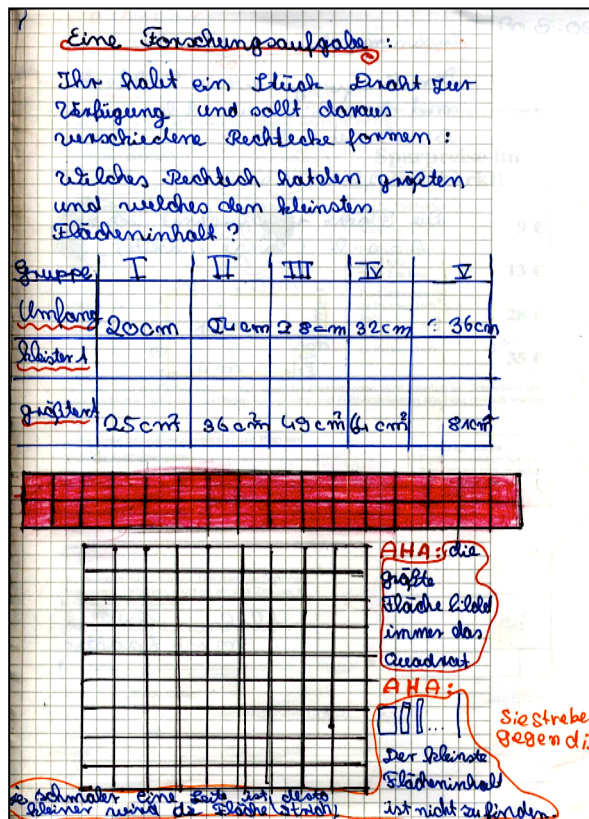 Eine Forschungsaufgabe:
Ihr habt ein Stück Draht zur
Verfügung und sollt daraus
verschiedene Rechtecke formen:
Welches Rechteck hat den größten
und welches den kleinsten
Flächeninhalt?
Gruppe I II III IV V
Umfang 20cm 24cm 28cm 32cm 36cm
kleinster A
größter A 25cm² 36cm² 49cm² 64cm² 81cm²
AHA: die
größte
Fläche bildd
immer das
Quadrat
AHA:
...
Sie strebe
gegen di
Der kleinste
Flächeninhald
ist nicht zu finden.
je schmaler eine Seite ist, desto
kleiner wird die Fläche (Strich)